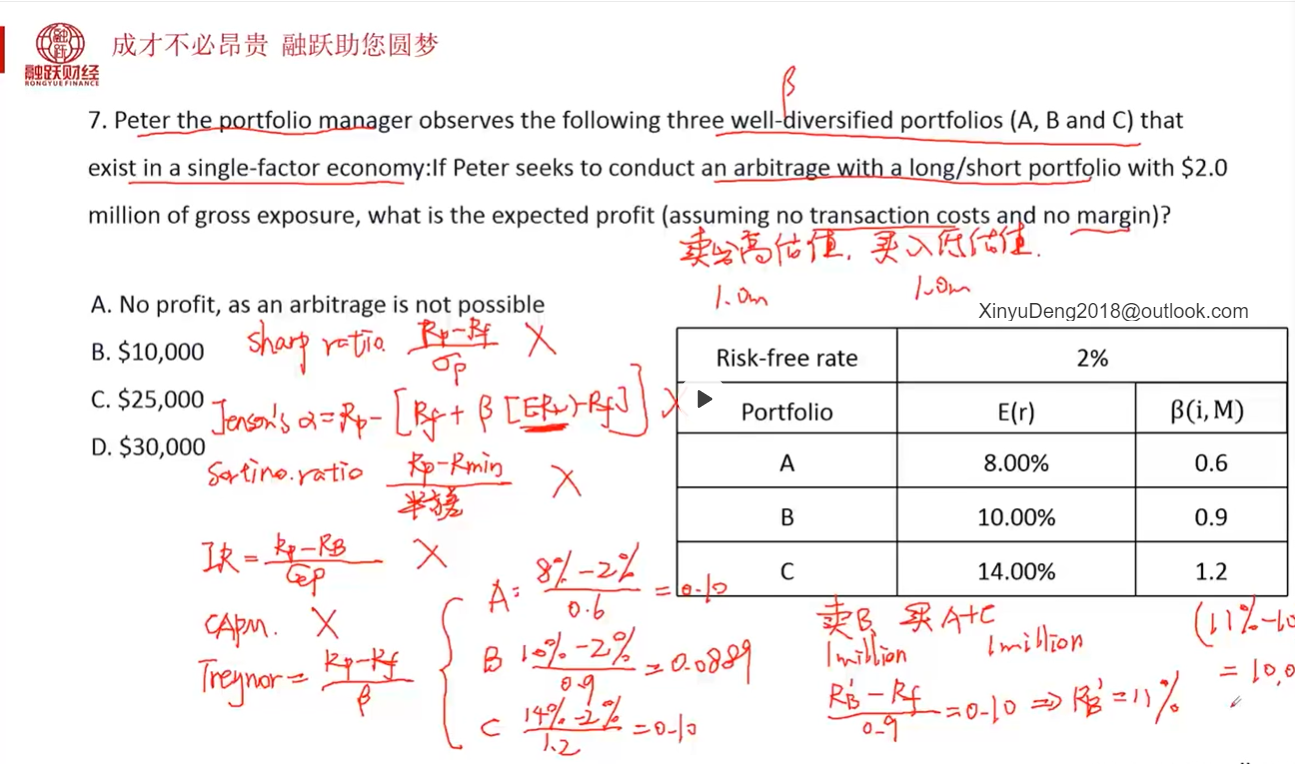 成才不必昂贵 融跃助您圆梦
融跃财经
RONGYUE FINANCE
β
7. Peter the portfolio manager observes the following three well-diversified portfolios (A, B and C) that
exist in a single-factor economy:If Peter seeks to conduct an arbitrage with a long/short portfolio with $2.0
million of gross exposure, what is the expected profit (assuming no transaction costs and no margin)?
卖出高估值, 买入低估值.
1.0m 1.0m
A. No profit, as an arbitrage is not possible
XinyuDeng2018@outlook.com
B. $10,000
Sharp ratio. Rp-Rf / σp X
C. $25,000
Jenson's α=Rp-[Rf+β[ERM)-Rf]] X
D. $30,000
Sortino.ratio Rp-Rmin / 半方差 X
Risk-free rate 2%
Portfolio E(r) β(i, M)
A 8.00% 0.6
B 10.00% 0.9
C 14.00% 1.2
IR = Rp-RB / σep X
CAPM. X
Treynor = Rp-Rf / β
A: 8%-2% / 0.6 = 0.10
B 10%-2% / 0.9 = 0.0889
C 14%-2% / 1.2 = 0.10
卖B, 买A+C
1million 1million
RB'-Rf / 0.9 = 0.10 ⇒ RB' = 11%
(11%-10
= 10,0